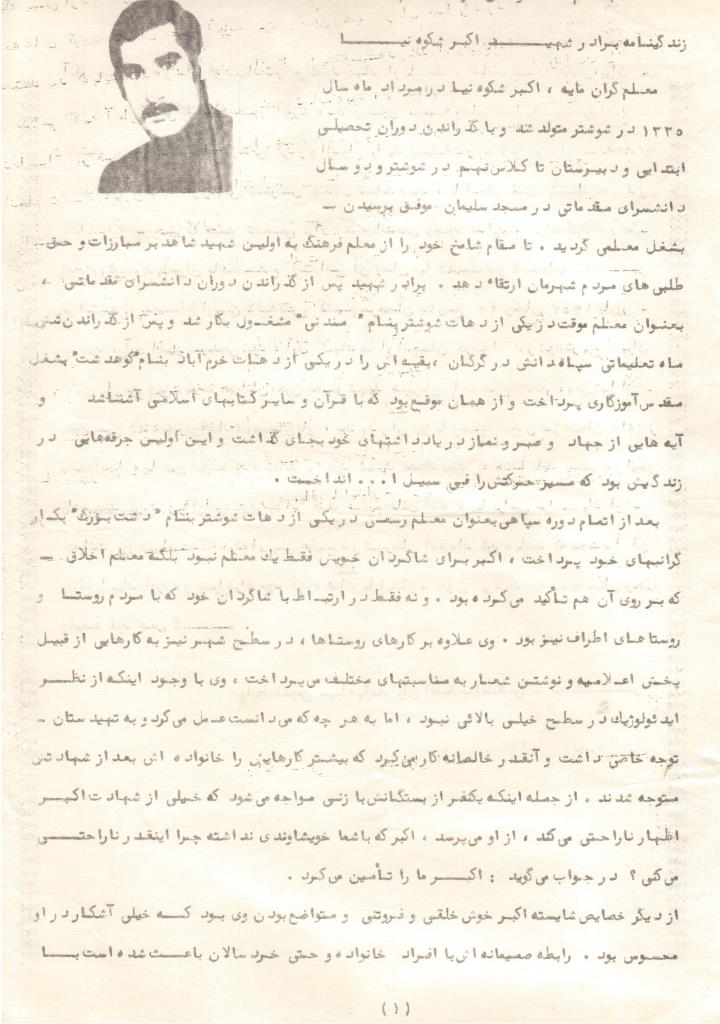 زندگینامه برادر شهیـــد اکبر شکوه نیـــا
معلم گران مایه ، اکبر شکوه نیا در مرداد ماه سال
۱۳۳۵ در شوشتر متولد شد و با گذراندن دوران تحصیلی
ابتدایی و دبیرستان تا کلاس نهم در شوشتر و دو سال
دانشسرای مقدماتی در مسجد سلیمان موفق برسیدن –
بشغل معلمی گردید . تا مقام شامخ خود را از معلم فرهنگ به اولین شهید شاهد بر مبارزات و حق
طلبی های مردم شهرمان ارتقاء دهد . برادر شهید پس از گذراندن دوران دانشسرای مقدماتی ،
بعنوان معلم موقت در یکی از دهات شوشتر بنام " مندنی" مشغول بکار شد و پس از گذراندن شش
ماه تعلیماتی سپاه دانش در گرگان ، بقیه اش را در یکی از دهات خرم آباد بنام "کوهدشت" بشغل
مقدس آموزگاری پرداخت و از همان موقع بود که با قرآن و سایر کتابهای اسلامی آشنا شد و
آیه هایی از جهاد و صبر و نماز در یادداشتهای خود بجای گذاشت و این اولین جرقه‌هایی در
زندگیش بود که مسیر حرکتش را فی سبیل ا... انداخت .
بعد از اتمام دوره سپاهی بعنوان معلم رسمی در یکی از دهات شوشتر بنام "دشت بزرگ" بکار
گرانبهای خود پرداخت ، اکبر برای شاگردان خویش فقط یک معلم نبود بلکه معلم اخلاق –
که بر روی آن هم تأکید می‌کرده بود . و نه فقط در ارتباط با شاگردان خود که با مردم روستا و
روستاهای اطراف نیز بود . وی علاوه بر کارهای روستاها ، در سطح شهر نیز به کارهایی از قبیل
پخش اعلامیه و نوشتن شعار به مناسبتهای مختلف می‌پرداخت ، وی با وجود اینکه از نظر
ایدئولوژیک در سطح خیلی بالائی نبود ، اما به هر چه که می‌دانست عمل می‌کرد و به تهیدستان –
توجه خاصی داشت و آنقدر خالصانه کار می‌کرد که بیشتر کارهایش را خانواده اش بعد از شهادتش
متوجه شدند . از جمله اینکه یکنفر از بستگانش با زنی مواجه می‌شود که خیلی از شهادت اکبر
اظهار ناراحتی می‌کند ، از او می‌پرسد ، اکبر که با شما خویشاوندی نداشته چرا اینقدر ناراحتـــی
می‌کنی ؟ در جواب می‌گوید : اکبـــر ما را تأمین می‌کرد .
از دیگر خصایص شایسته اکبر خوش خلقی و فروتنی و متواضع بودن وی بود کـــه خیلی آشکار در او
محسوس بود . رابطه صمیمانه اش با افراد خانواده و حتی خردسالان باعث شده است بـــا
(۱)